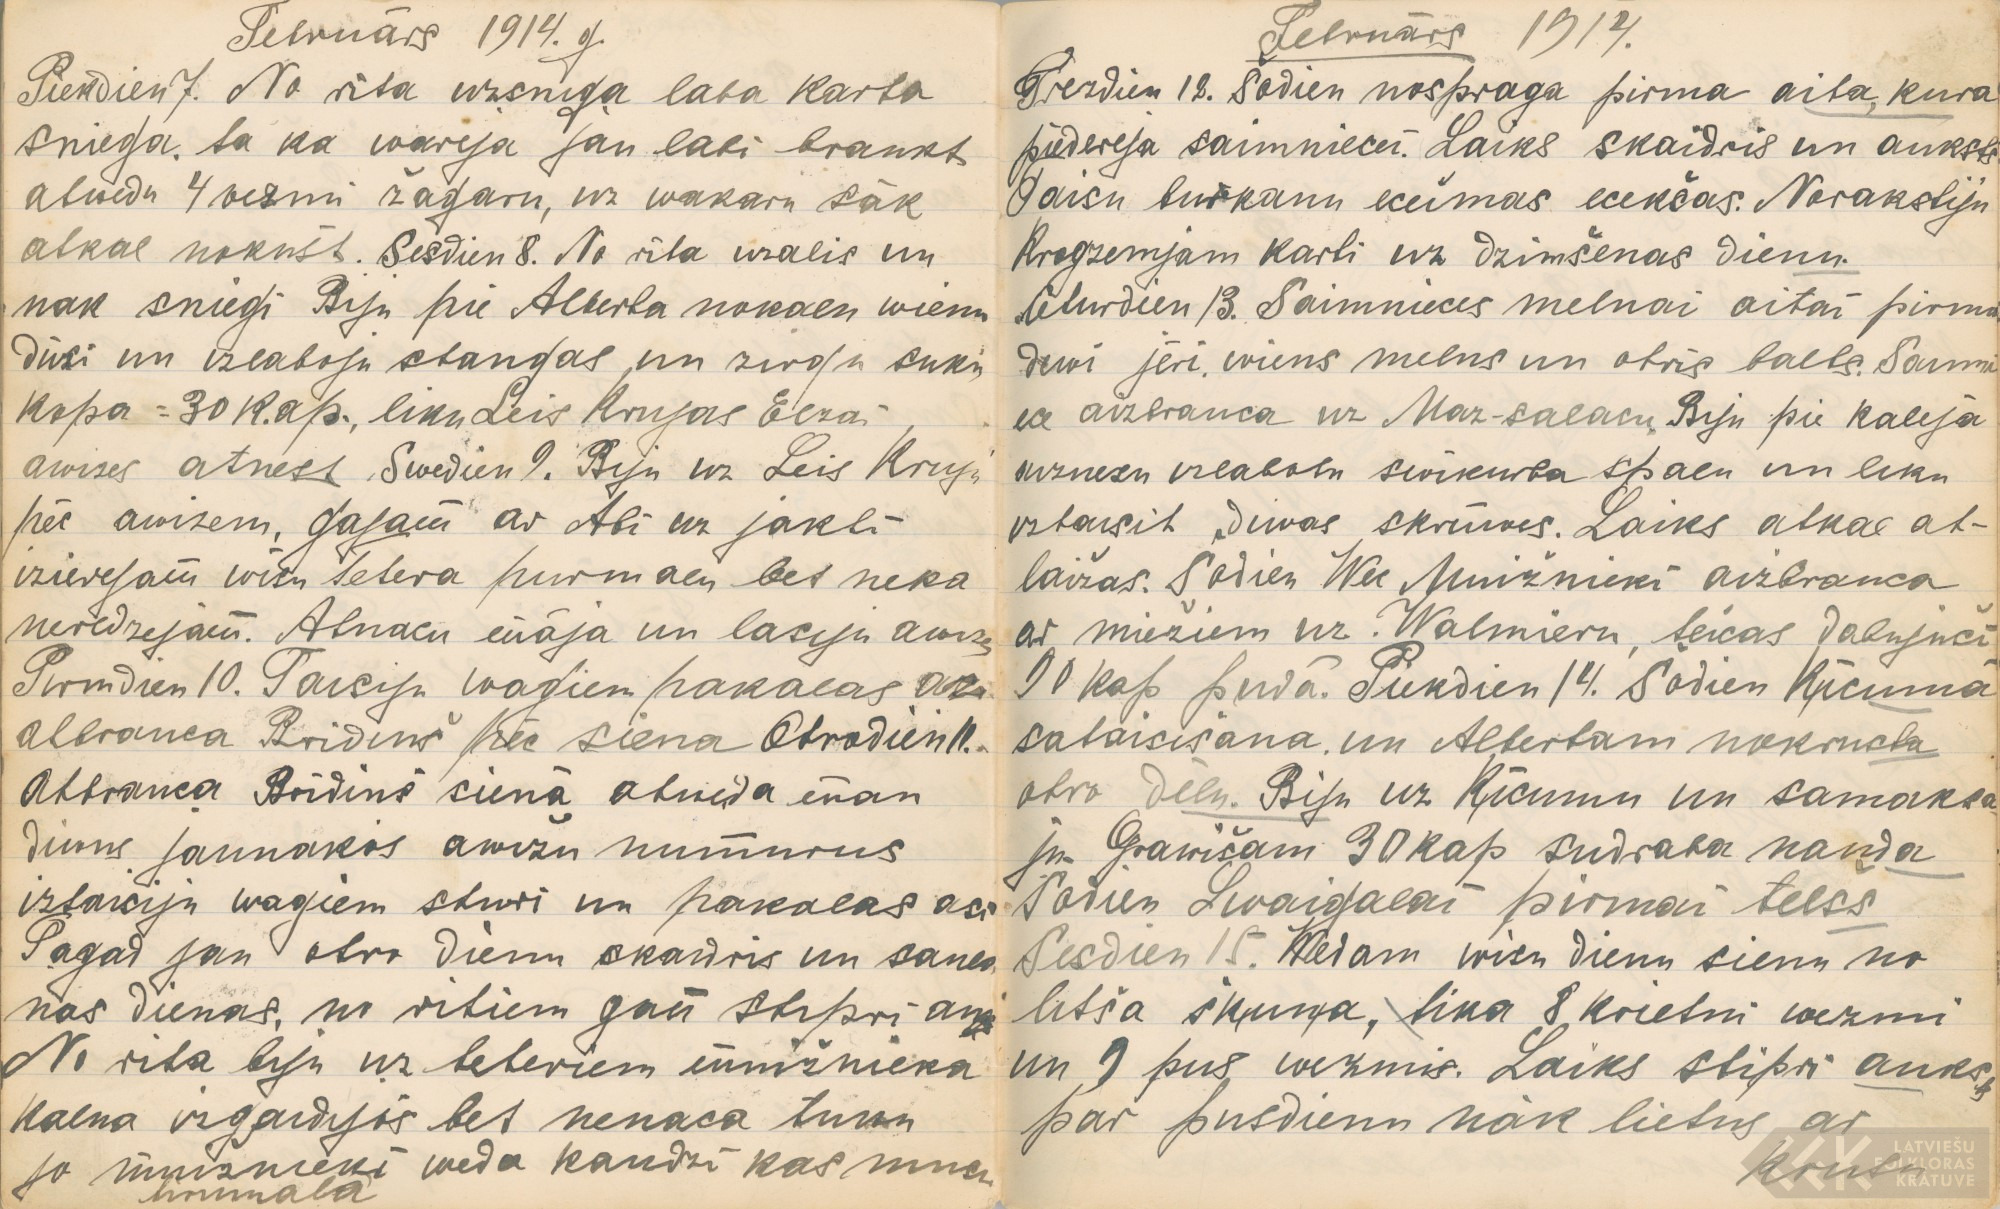 Februārs 1914. g.
Piekdien 7. No rita uzsniga laba karta
sniega. ta ka wareja jau labi braukt
atwedu 4 vezmi žagaru, uz wakaru sāk
atkal nokust. Sesdien 8. No rīta uzalis un
nak sniegi Biju pie Alberta nokalu wienu
dūzi un izlaboju stangas un zirgu suku
kopa = 30 Kap., liku Leis Krujas Elzai
awizes atnest Swedien 9. Biju uz Leis Kruju
pēc awizem, gajam ar Abi uz jakti
izierejam wisu tetera purmalu bet neka
neredzejam. Atnacu māja un lasiju awizes
Pirmdien 10. Taisiju wagiem pakaļas
atbrauca Bridiņš pēc siena Otrodien 11.
Atbrauca Brīdiņš sienā atweda man
diwus jaunakos awižu numurus
iztaisiju wagiem stūri un pakaļas
Tagad jau otro dienu skaidris un saulai
nas dienas, no ritiem gan stipri
No rita biju uz teteriem muižnieka
kalna izgaidijos bet nenaca tuwu
jo muižnieki weda kaudzi kas musu
purmala
Februārs 1914.
Trezdien 12. Šodien nospraga pirma aita, kura
piedereja saimniecei. Laiks skaidris un auksts.
Taisu burkanu ecēimas ecekšas. Norakstiju
Krogzemjam karti uz dzimšenas dienu.
Ceturdien 13. Saimnieces melnai aitai pirmie
diwi jēri. wiens melns un otris balts. Saimni
ece aizbrauca uz Maz-salacu Biju pie kaleja
aiznesu izlabotu swikurta spalu un liku
iztaisit diwas skrūwes. Laiks atkal at-
laižas. Šodien Wec Muižnieki aizbrauca
ar miežiem uz Walmieru, teicas dabujuši
90 kap pudā. Piekdien 14. Šodien Ķicumā
sataisišana. un Albertam nokrusta
otro dēlu. Biju uz Ķicumu un samaksa
ju Grawišam 30 kap sudraba nauda
Šodien Zwaigalai pirmai telšs
Sesdien 15. Wedam wisu dienu sienu no
letša šķuņa, tika 8 krietni wezmi
un 9 pus wezmis. Laiks stipri auksts
par pusdienu nāk lietus ar
krusu
LATVIEŠU
FOLKLORAS
KRĀTUVE